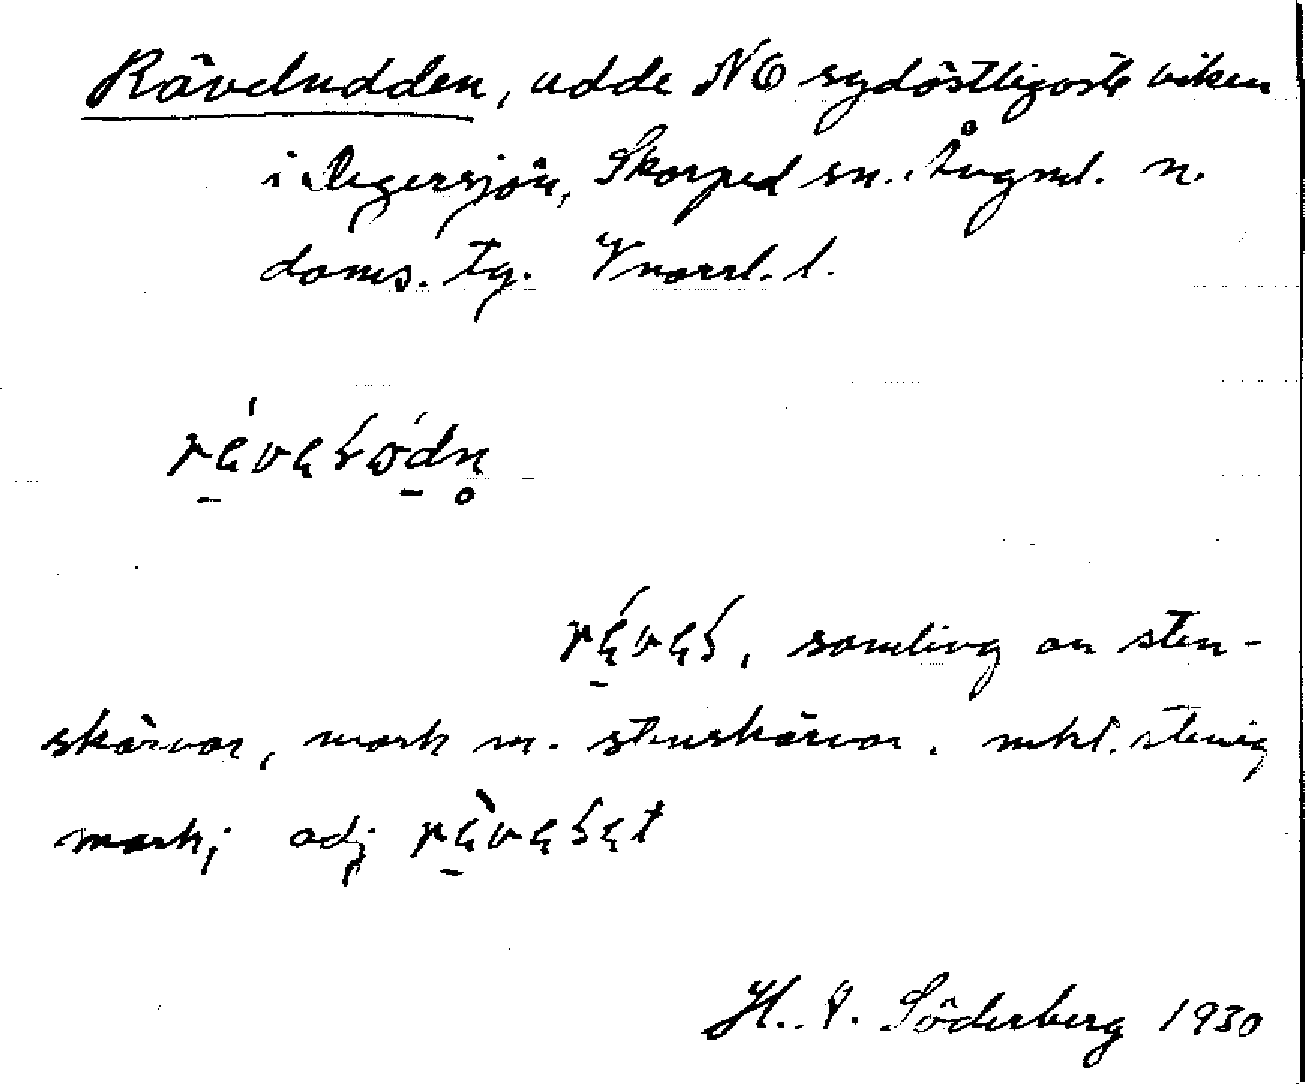 Räveludden, udde NO sydöstligaste viken
i Degersjön, Skorped sn. Ångml. n.
doms. tg. Vnorrl. l.
samling av sten-
skärvor, mark m. stenskärvor. mkt. stenig
mark; adj
H. V. Söderberg 1930